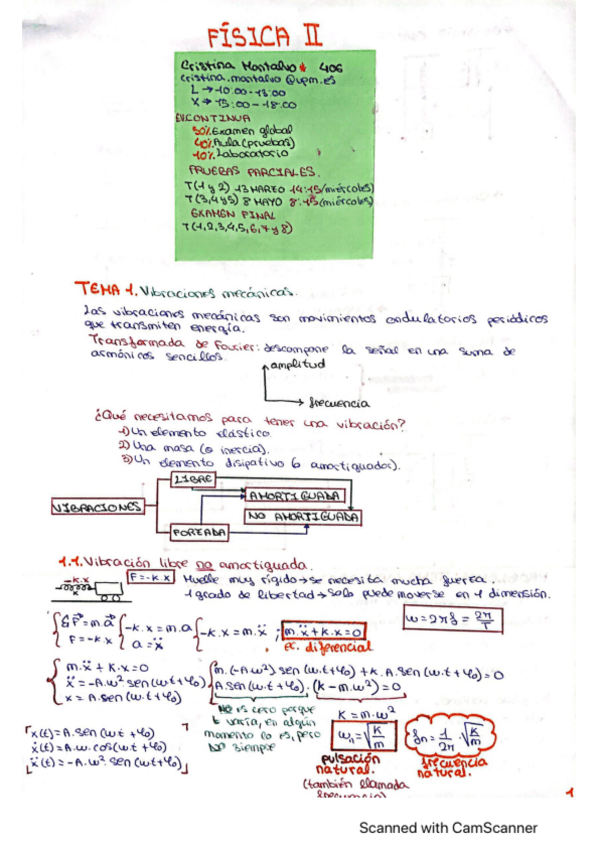 FÍSICA II
Cristina Montalvo 406
cristina.montalvo@upm.es
L → 10:00-13:00
X → 15:00-18:00
EV. CONTINUA
50% Examen global
40% Aula (pruebas)
10% Laboratorio
PRUEBAS PARCIALES.
T(1 y 2) 13 MARZO 14:15 (miércoles)
T(3,4 y 5) 8 MAYO 8:15 (miércoles)
EXAMEN FINAL
T(1,2,3,4,5,6,7 y 8)
TEMA 1. Vibraciones mecánicas.
Las vibraciones mecánicas son movimientos ondulatorios periódicos
que transmiten energía.
Transformada de Fourier: descompone la señal en una suma de
armónicos sencillos.
amplitud
frecuencia
¿Qué necesitamos para tener una vibración?
1) Un elemento elástico
2) Una masa (o inercia).
3) Un elemento disipativo (o amortiguador).
LIBRE
AMORTIGUADA
VIBRACIONES
NO AMORTIGUADA
FORZADA
1.1. Vibración libre no amortiguada.
-k.x
F=-k.x
Muelle muy rígido → se necesita mucha fuerza.
1 grado de libertad → solo puede moverse en 1 dimensión.
ω = 2πf = 2π/T
ΣF⃗ = m.a⃗
F = -k.x
-k.x = m.a
a = ẍ
-k.x = m.ẍ ; m.ẍ + k.x = 0
ec. diferencial
m.ẍ + k.x = 0
ẍ = -A.ω² sen (ω.t + φ₀)
x = A.sen (ω.t + φ₀)
m.(-A.ω²).sen (ω.t + φ₀) + k.A.sen (ω.t + φ₀) = 0
A.sen (ω.t + φ₀).(k - m.ω²) = 0
NO es cero porque
t varía, en algún
momento lo es, pero
NO siempre
k = m.ω²
ωₙ = √(k/m)
pulsación
natural.
(también llamada
frecuencia)
fₙ = 1/2π . √(k/m)
frecuencia
natural.
x(t) = A.sen (ωt + φ₀)
ẋ(t) = A.ω.cos (ωt + φ₀)
ẍ(t) = -A.ω² sen (ωt + φ₀)
1
Scanned with CamScanner